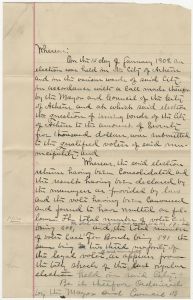 Whereas:
On the 15 day of January 1908 an
election was held in the City of Athens
and in the various wards of said City
in accordance with a call made therefor
by the Mayor and Council of the City
of Athens, at which said election
the question of issuing bonds of the City
of Athens to the amount of Seventy
five thousand dollars was submitted
to the qualified voters of said
municipality and
Whereas, the said election
returns having been consolidated and
the result having been declared by
the managers as provided by law
and the vote having been canvassed
and found to have resulted as
follows: The total number of votes
being and the total number
of votes cast "For Bonds" being the
same being a two thirds majority of
the legal voters, as appears from
the tally sheets of the last regular
election held in said City
Be it therefore Ordained
by the Mayor and Council of